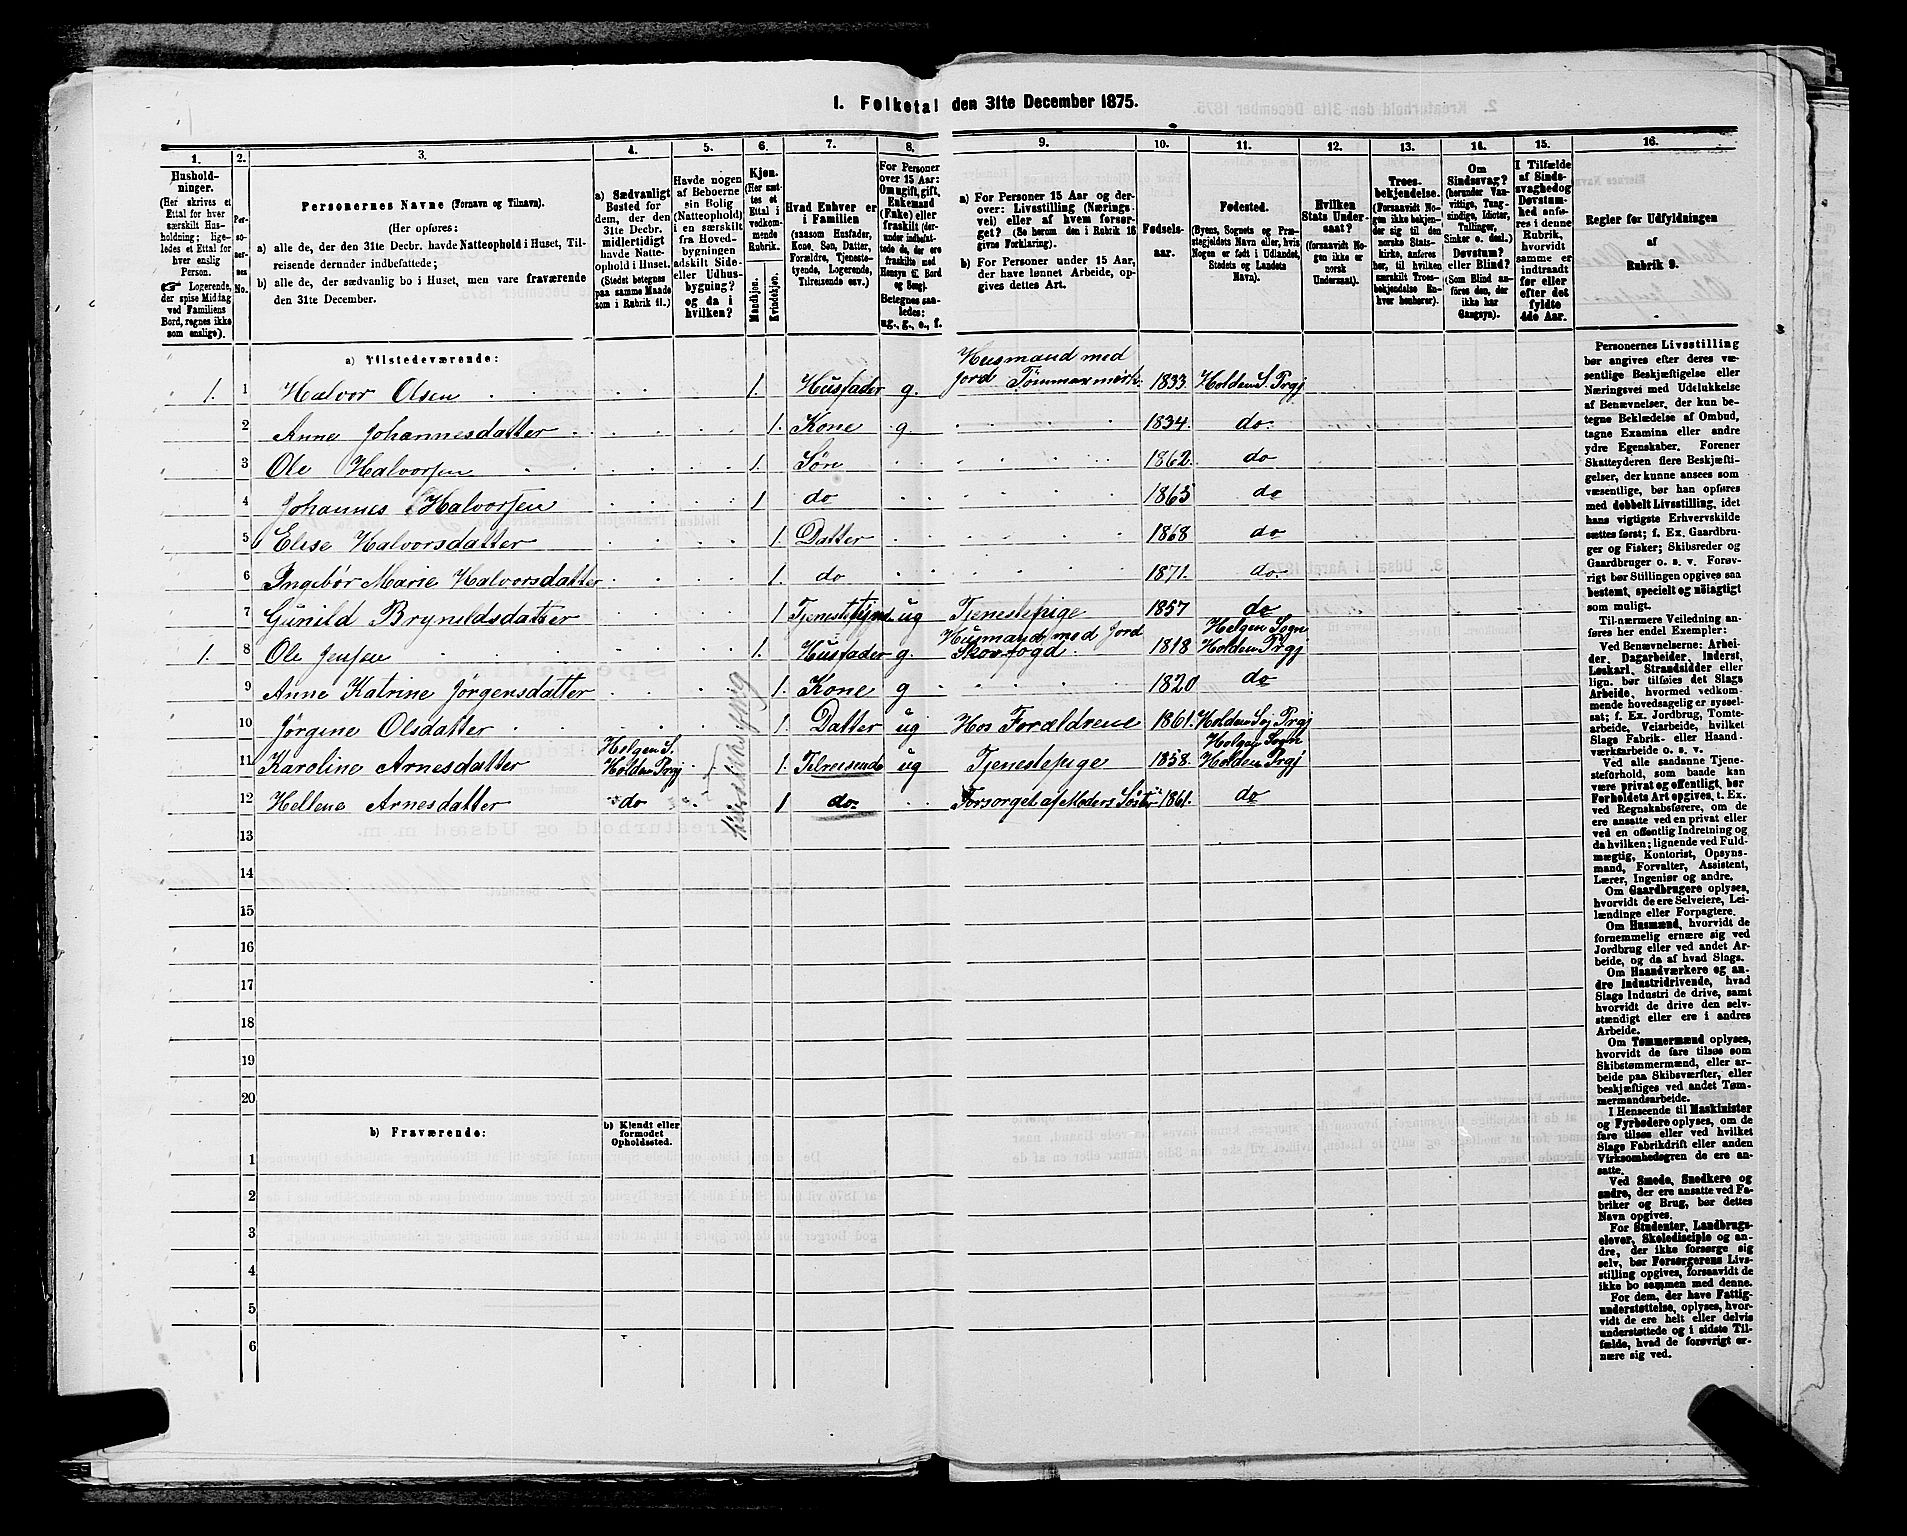 1. Folketal den 31te December 1875.
1. 2. 3. 4. 5. 6. 7. 8. 9. 10. 11. 12. 13. 14. 15. 16.
Husholdninger.
(Her skrives et
Ettal for hver
særskilt Husholdning; ligeledes
et Ettal for
hver enslig
Person.
Logerende,
der spise Middag
ved Familiens
Bord, regnes ikke
som enslige).
Personernes No.
Personernes Navne (Fornavn og Tilnavn).
(Her opføres:
a) alle de, der den 31te Decbr. havde Natteophold i Huset, Tilreisende derunder indbefattede;
b) alle de, der sædvanlig bo i Huset, men vare fraværende
den 31te December.
a) Sædvanligt
Bosted for
dem, der den
31te Decbr.
midlertidigt
havde Natteophold
i Huset.
(Stedet betegnes
paa samme Maade
som i Rubrik 11.)
Havde nogen
af Beboerne
sin Bolig
(Natteophold)
i en særskilt
fra Hovedbygningen
adskilt Side-
eller Udhusbygning?
og da i
hvilken?
Kjøn.
(Her sættes
et
Ettal i
vedkommende
Rubrik.
Mandkjøn.
Kvindekjøn.
Hvad Enhver er
i Familien
(saasom Husfader,
Kone, Søn, Datter,
Forældre, Tjenestetyende,
Logerende,
Tilreisende osv.)
For Personer
over 15 Aar:
Om ugift, gift,
Enkemand
(Enke) eller
fraskilt (derunder
indbefattede
de, der ere
fraskilte med
Hensyn til Bord
og Seng).
Betegnes saaledes:
ug., g., e., f.
a) For Personer 15 Aar og derover:
Livsstilling (Næringsvei)
eller af hvem forsørget?
(Se herom den i Rubrik 16
givne Forklaring).
b) For Personer under 15 Aar,
der have lønnet Arbeide, opgives
dettes Art.
Fødselsaar.
Fødested.
(Byens, Sognets og Præstegjeldets
Navn, eller, hvis
Nogen er født i Udlandet,
Stedets og Landets
Navn).
Hvilken
Stats Undersaat?
(forsaavidt Nogen
ikke er
norsk
Undersaat).
Troesbekjendelse.
(Forsaavidt Nogen
ikke bekjender
sig til den
norske Statskirke,
anføres
her, til hvilken
særskilt Troesbekjendelse
Enhver
henhører).
Om
Sindssvag?
(herunder Vanvittige,
Tungsindige,
Idioter,
Tullinger,
Sinker o. desl.)
Døvstum?
eller Blind?
(Som Blind anføres
den, der
ikke har
Gangsyn).
I Tilfælde
af Sindssvaghed
og
Døvstumhed
anføres
i denne
Rubrik,
hvorvidt
samme er
indtraadt
før eller
efter det
fyldte
4de Aar.
Regler for Udfyldningen
af
Rubrik 9.
a) Tilstedeværende:
1. 1 Halvor Olsen 1. Husfader g. Husmand med Jord Tømmermærk. 1833. Holden S. Prgj
2 Anne Johannesdatter 1. Kone g. 1834. do.
3 Ole Halvorsen 1. Søn 1862. do
4 Johannes Halvorsen 1 do 1865 do
5 Elise Halvorsdatter 1. Datter 1868 do
6 Ingebør Marie Halvorsdatter 1. do 1871. do.
7 Gunild Brynildsdatter 1 Tjenestetyende ug Tjenestepige 1857 do
1. 8 Ole Jensen 1. Husfader g. Husmand med Jord Skovfogd. 1818 Helgen Sogn Holden Prgj
9 Anne Katrine Jörgensdatter 1. Kone g 1820 do
10 Jörgine Olsdatter 1. Datter ug Hos Forældrene 1861. Holden S. Prgj
11 Karoline Arnesdatter Helgen S. Holden Prgj 1. Tilreisende ug Tjenestepige 1858. Helgen Sogn Holden Prgj
12 Hellene Arnesdatter do 1 do. Forsorget af Moders Søster 1861. do
13
14
15
16
17
18
19
20
b) Fraværende:
b) Kjendt eller
formodet
Opholdssted.
1
2
3
4
5
6
Personernes Livsstilling
bør angives efter deres væsentlige
Beskjæftigelse eller
Næringsvei med Udelukkelse
af Benævnelser, der kun betegne
Beklædelse af Ombud,
tagne Examina eller andre
ydre Egenskaber. Forener
Skatteyderen flere Beskjæftigelser,
der kunne ansees som
væsentlige, bør han opføres
med dobbelt Livsstilling, idet
hans vigtigste Erhvervskilde
sættes først; f. Ex. Gaardbruger
og Fisker; Skibsreder og
Gaardbruger o. s. v. Forøvrigt
bør Stillingen opgives saa
bestemt, specielt og nøiagtigt
som muligt.
Til nærmere Veiledning anføres
her endel Exempler:
Ved Benævnelserne: Arbeider,
Dagarbeider, Inderst,
Løskarl, Strandsidder eller
lign. bør tilføies det Slags
Arbeide, hvormed vedkommende
hovedsagelig er sysselsat;
f. Ex. Jordbrug, Tomtearbeide,
Veiarbeide, hvilket
Slags Fabrik- eller Haandværksarbeide
o. s. v.
Ved alle saadanne Tjenesteforhold,
som baade kan
være privat og offentligt, bør
Forholdets Art opgives, t. Ex.
ved Regnskabsførere, om de
ere ansatte ved en privat eller
ved en offentlig Indretning og
da hvilken; lignende ved Fuldmægtig,
Kontorist, Opsynsmand,
Forvalter, Assistent,
Lærer, Ingeniør og andre.
Om Gaardbrugere oplyses,
hvorvidt de ere Selveiere, Leilændinge
eller Forpagtere.
Om Husmænd, hvorvidt de
fornemmelig ernære sig ved
Jordbrug eller ved andet Arbeide,
og da af hvad Slags.
Om Haandværkere og andre
Industridrivende, hvad
Slags Industri de drive, samt
hvorvidt de drive den selvstændigt
eller ere i andres
Arbeide.
Om Tømmermænd oplyses,
hvorvidt de fare tilsøs som
Skibstømmermænd, eller arbeide
paa Skibsværfter, eller
beskjæftiges ved andet Tømmermandsarbeide.
I Henseende til Maskinister
og Fyrbødere oplyses, om de
fare tilsøs eller ved hvilket
Slags Fabrikdrift eller anden
Virksomhedsgren de ere ansatte.
Ved Smede, Snedkere og
andre, der ere ansatte ved Fabriker
og Brug, bør dettes
Navn opgives.
For Studenter, Landbrugselever,
Skoledisciple og andre,
der ikke forsørge sig
selv, bør Forsørgerens Livsstilling
opgives, forsaavidt de
ikke bo sammen med denne.
For dem, der have Fattigunderstøttelse,
oplyses, hvorvidt
de ere helt eller delvis
understøttede og i sidste Tilfælde,
hvad de forøvrigt ernære
sig ved.